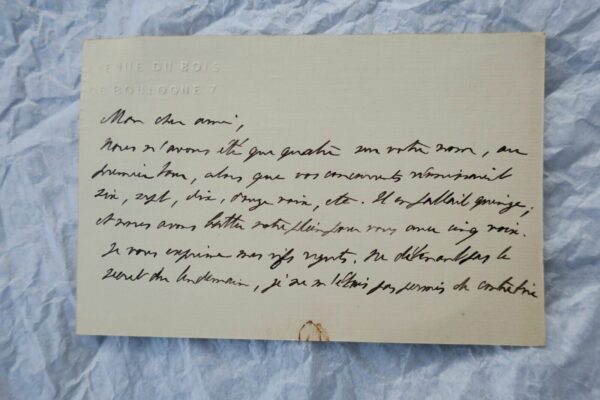 AVENUE DU BOIS
DE BOULOGNE 7
Mon cher ami,
Nous n'avons été que quatre sur votre nom, au
premier tour, alors que vos concurrents réunissaient
six, sept, dix, douze voix, etc. Il en fallait quinze;
et nous avons lutter votre pour vous avec cinq voix.
Je vous exprime mes vifs regrets. Ne détenant pas le
secret du lendemain, je ne m'étais pas permis de contredire